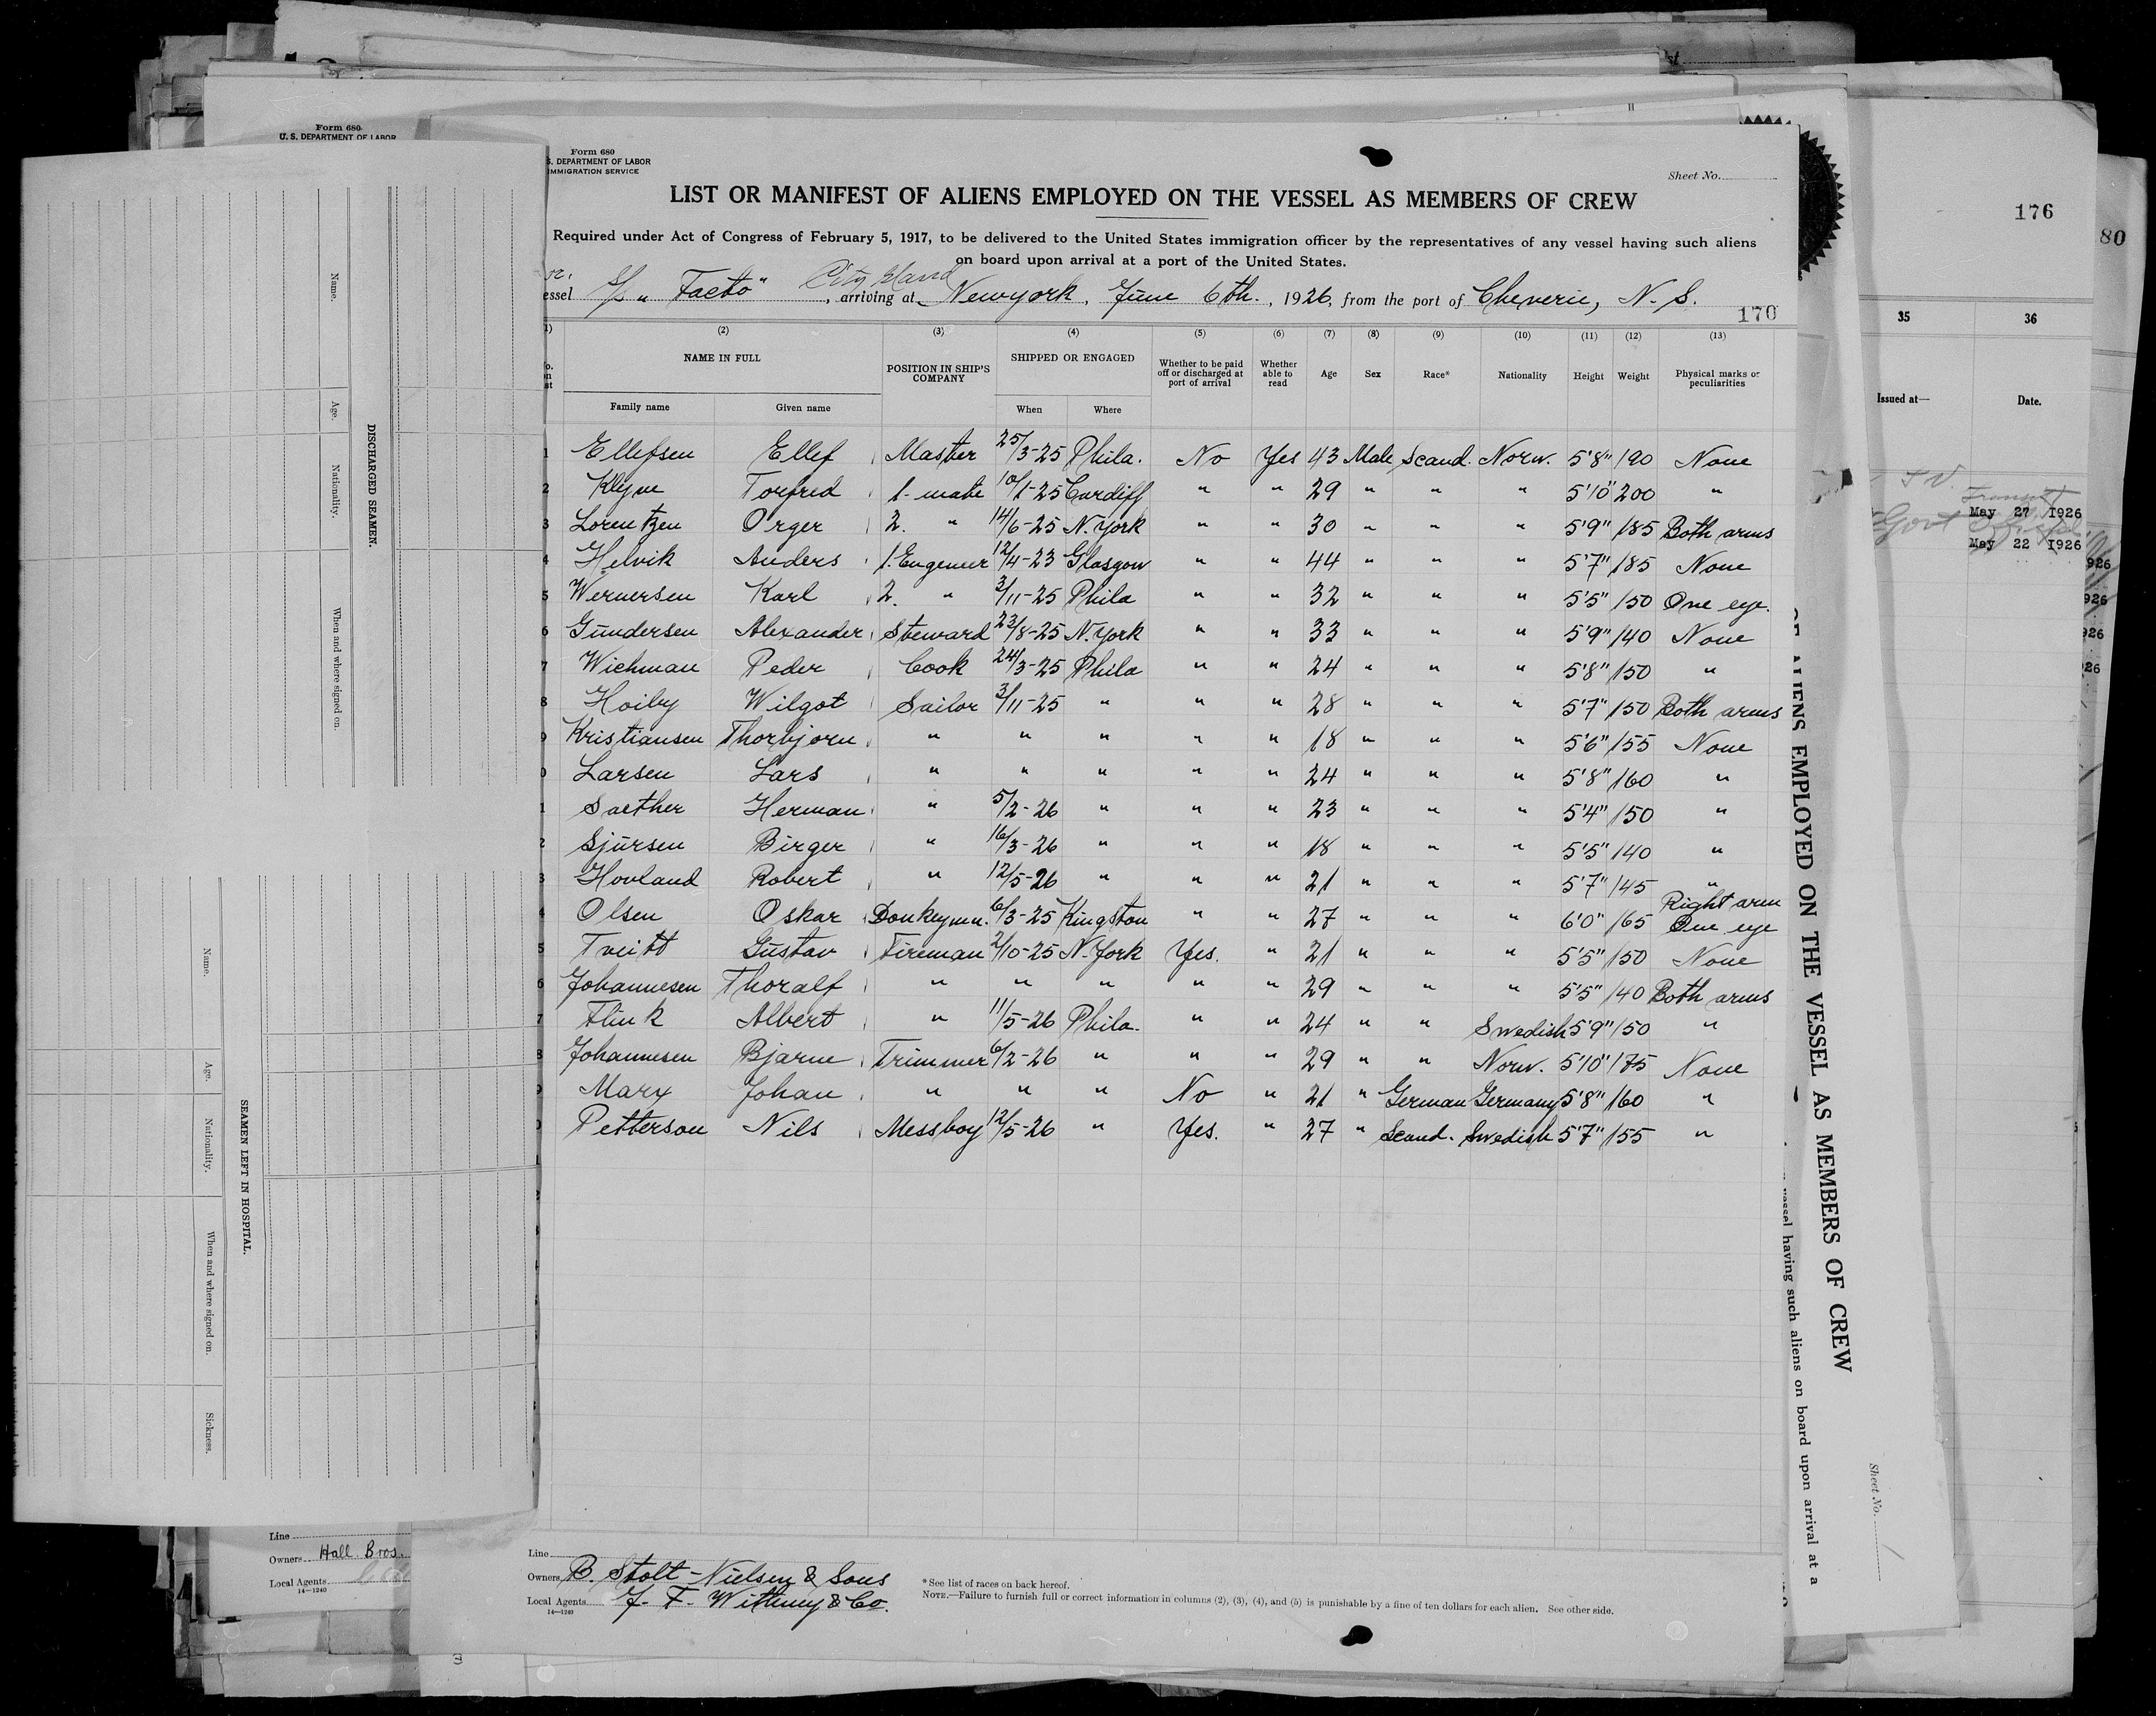 Form 680
U. S. DEPARTMENT OF LABOR
Form 680
S. DEPARTMENT OF LABOR
IMMIGRATION SERVICE
Sheet No.
LIST OR MANIFEST OF ALIENS EMPLOYED ON THE VESSEL AS MEMBERS OF CREW
Required under Act of Congress of February 5, 1917, to be delivered to the United States immigration officer by the representatives of any vessel having such aliens
on board upon arrival at a port of the United States.
City Island
essel S/S "Facto", arriving at Newyork, June 6th., 1926, from the port of Cheverie, N. S.
170
(2) (3) (4) (5) (6) (7) (8) (9) (10) (11) (12) (13)
NAME IN FULL POSITION IN SHIP'S COMPANY SHIPPED OR ENGAGED Whether to be paid off or discharged at port of arrival Whether able to read Age Sex Race* Nationality Height Weight Physical marks or peculiarities
Family name Given name When Where
1 Ellefsen Ellef Master 25/3-25 Phila. No Yes 43 Male Scand. Norw. 5'8" 190 None
2 Klyne Torfred 1-mate 10/1-25 Cardiff " " 29 " " " 5'10" 200 "
3 Lorentzen Orger 2. " 14/6-25 N. York " " 30 " " " 5'9" 185 Both arms
4 Helvik Anders 1. Engeneer 12/4-23 Glasgow " " 44 " " " 5'7" 185 None
5 Wernersen Karl 2. " 3/11-25 Phila " " 32 " " " 5'5" 150 One eye.
6 Gundersen Alexander Steward 23/8-25 N. York " " 33 " " " 5'9" 140 None
7 Wichman Peder Cook 24/3-25 Phila " " 24 " " " 5'8" 150 "
8 Hoiby Wilgot Sailor 3/11-25 " " " 28 " " " 5'7" 150 Both arms
9 Kristiansen Thorbjorn " " " " " 18 " " " 5'6" 155 None
0 Larsen Lars " " " " " 24 " " " 5'8" 160 "
1 Saether Herman " 5/2-26 " " " 23 " " " 5'4" 150 "
2 Sjursen Birger " 16/3-26 " " " 18 " " " 5'5" 140 "
3 Hovland Robert " 12/5-26 " " " 21 " " " 5'7" 145 "
4 Olsen Oskar Donkeymn. 6/3-25 Kingston " " 27 " " " 6'0" 165 Right arm One eye
5 Tveitt Gustav Fireman 2/10-25 N. York Yes. " 21 " " " 5'5" 150 None
6 Johannesen Thoralf " " " " " 29 " " " 5'5" 140 Both arms
7 Flink Albert " 11/5-26 Phila. " " 24 " " Swedish 5'9" 150 "
8 Johannesen Bjarne Trimmer 6/2-26 " " " 29 " " Norw. 5'10" 175 None
9 Marx Johan " " " No " 21 " German Germany 5'8" 160 "
0 Petterson Nils Messboy 12/5-26 " Yes. " 27 " Scand. Swedish 5'7" 155 "
Line
Owners B. Stolt-Nielsen & Sons
Local Agents J. F. Withney & Co.
14—1240
*See list of races on back hereof.
NOTE.—Failure to furnish full or correct information in columns (2), (3), (4), and (5) is punishable by a fine of ten dollars for each alien. See other side.
DISCHARGED SEAMEN.
Name. Age. Nationality. When and where signed on.
SEAMEN LEFT IN HOSPITAL.
Name. Age. Nationality. When and where signed on. Sickness.
Line
Owners Hall Bros.
Local Agents
14—1240
176
80
35 36
Issued at— Date.
Transit
May 27 1926
Govt Official
May 22 1926
926
926
926
926
OF ALIENS EMPLOYED ON THE VESSEL AS MEMBERS OF CREW
vessel having such aliens on board upon arrival at a
Sheet No.